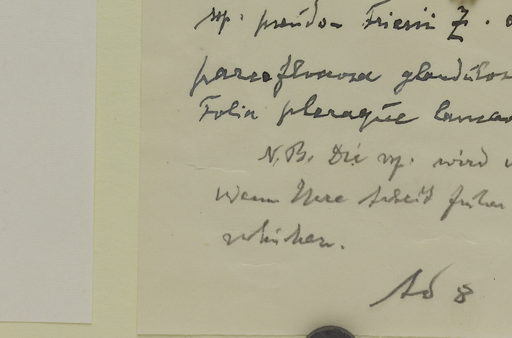 sp. pseudo-Friesii Z.
parce flexuosa glandulos
Folia pleraque lanceo
N.B. Die sp. wird
wenn Ihre Arbeit früher